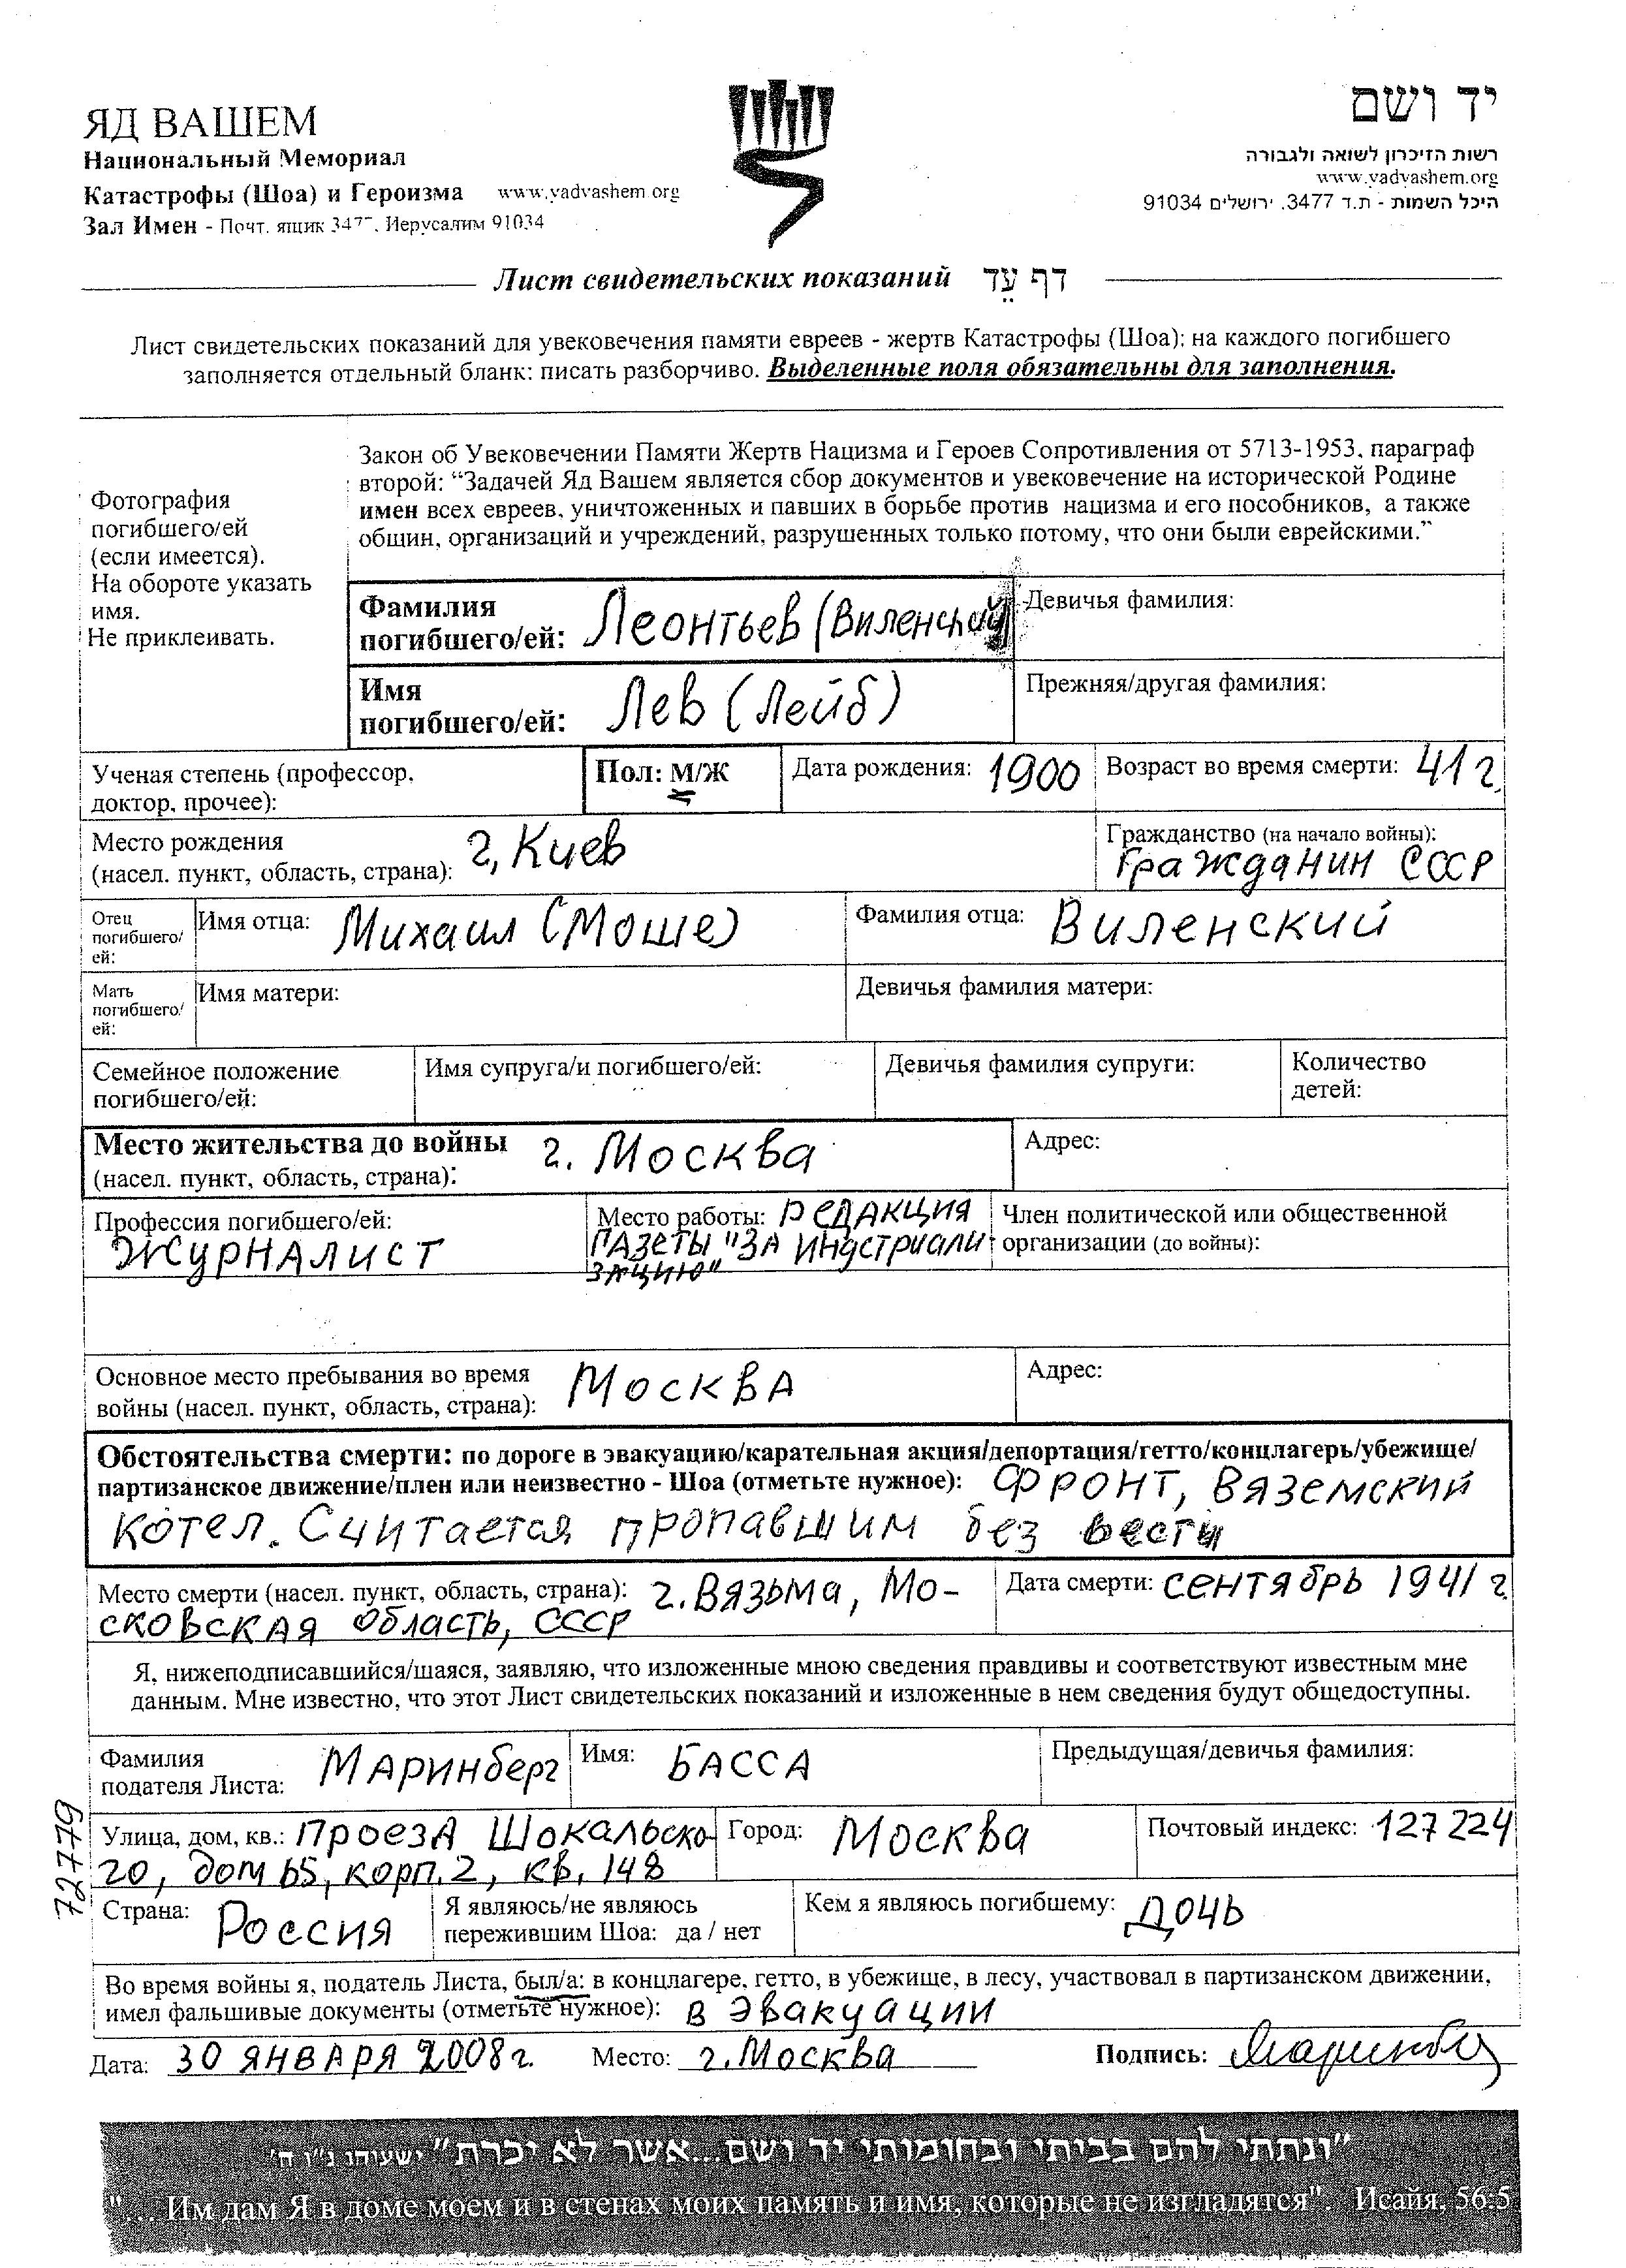 ЯД ВАШЕМ
Национальный Мемориал
Катастрофы (Шоа) и Героизма www.yadvashem.org
Зал Имен - Почт. ящик 3477, Иерусалим 91034
יד ושם
רשות הזיכרון לשואה ולגבורה
www.yadvashem.org
היכל השמות - ת.ד 3477, ירושלים 91034
Лист свидетельских показаний דף עֵד
Лист свидетельских показаний для увековечения памяти евреев - жертв Катастрофы (Шоа); на каждого погибшего
заполняется отдельный бланк: писать разборчиво. Выделенные поля обязательны для заполнения.
Фотография
погибшего/ей
(если имеется).
На обороте указать
имя.
Не приклеивать.
Закон об Увековечении Памяти Жертв Нацизма и Героев Сопротивления от 5713-1953, параграф
второй: “Задачей Яд Вашем является сбор документов и увековечение на исторической Родине
имен всех евреев, уничтоженных и павших в борьбе против нацизма и его пособников, а также
общин, организаций и учреждений, разрушенных только потому, что они были еврейскими.”
Фамилия
погибшего/ей: Леонтьев (Виленский)
Девичья фамилия:
Имя
погибшего/ей: Лев (Лейб)
Прежняя/другая фамилия:
Ученая степень (профессор,
доктор, прочее):
Пол: М/Ж
Дата рождения: 1900
Возраст во время смерти: 41 г.
Место рождения
(насел. пункт, область, страна): г, Киев
Гражданство (на начало войны):
Гражданин СССР
Отец
погибшего/
ей:
Имя отца: Михаил (Моше)
Фамилия отца: Виленский
Мать
погибшего/
ей:
Имя матери:
Девичья фамилия матери:
Семейное положение
погибшего/ей:
Имя супруга/и погибшего/ей:
Девичья фамилия супруги:
Количество
детей:
Место жительства до войны
(насел. пункт, область, страна): г. Москва
Адрес:
Профессия погибшего/ей:
Журналист
Место работы: редакция
газеты "За индустриали
зацию"
Член политической или общественной
организации (до войны):
Основное место пребывания во время
войны (насел. пункт, область, страна): Москва
Адрес:
Обстоятельства смерти: по дороге в эвакуацию/карательная акция/депортация/гетто/концлагерь/убежище/
партизанское движение/плен или неизвестно - Шоа (отметьте нужное): Фронт, Вяземский
котел. Считается пропавшим без вести
Место смерти (насел. пункт, область, страна): г. Вязьма, Мо-
сковская область, СССР
Дата смерти: сентябрь 1941 г.
Я, нижеподписавшийся/шаяся, заявляю, что изложенные мною сведения правдивы и соответствуют известным мне
данным. Мне известно, что этот Лист свидетельских показаний и изложенные в нем сведения будут общедоступны.
Фамилия
подателя Листа: Маринберг
Имя: Басса
Предыдущая/девичья фамилия:
Улица, дом, кв.: проезд Шокальско-
го, дом 65, корп. 2, кв. 148
Город: Москва
Почтовый индекс: 127224
727779
Страна: Россия
Я являюсь/не являюсь
пережившим Шоа: да / нет
Кем я являюсь погибшему: Дочь
Во время войны я, податель Листа, был/а: в концлагере, гетто, в убежище, в лесу, участвовал в партизанском движении,
имел фальшивые документы (отметьте нужное): в эвакуации
Дата: 30 января 2008 г. Место: г. Москва Подпись:
"ונתתי להם בביתי ובחומותי יד ושם...אשר לא יכרת" ישעיהו נ"ו ה'
"... Им дам Я в доме моем и в стенах моих память и имя, которые не изгладятся". Исайя, 56:5